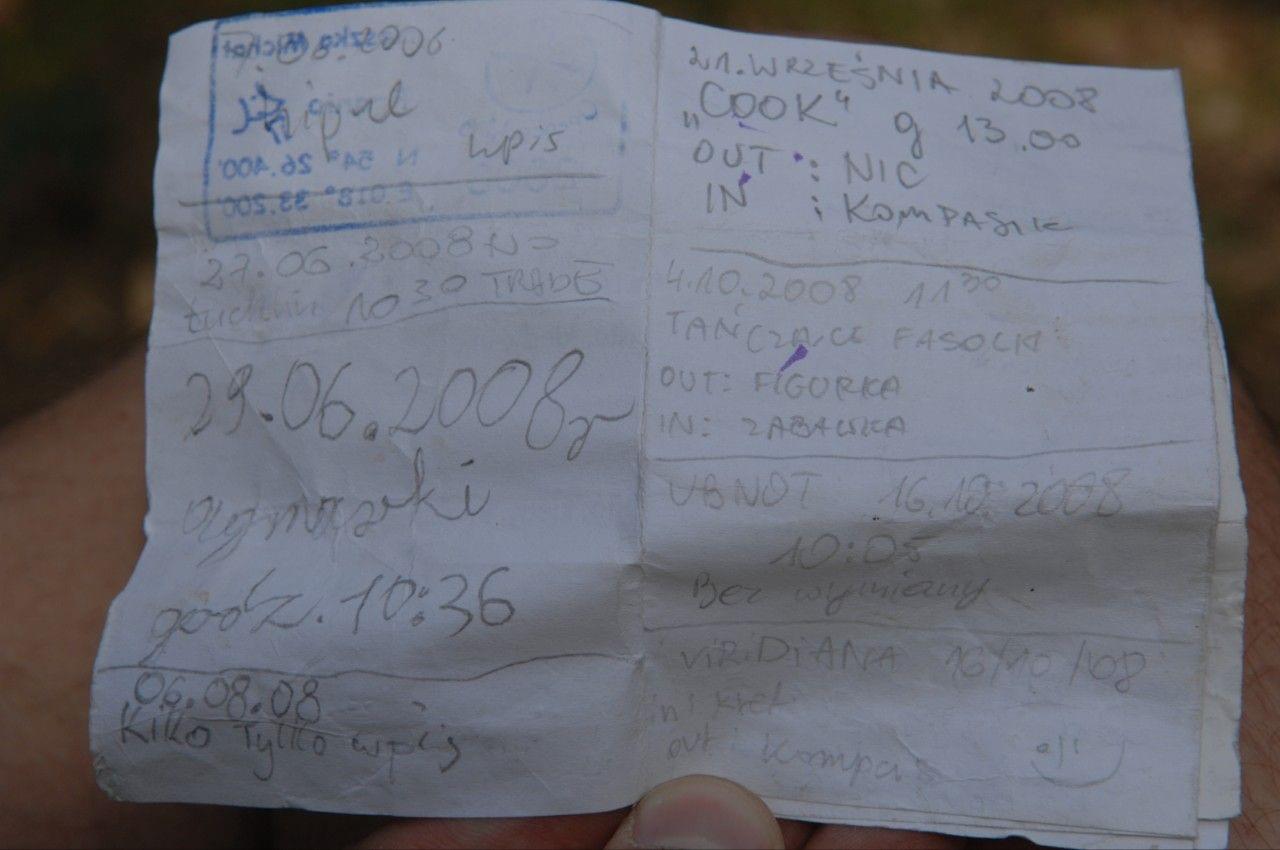 wpis
27.06.2008 NO
10 30 TRADE
29.06.2008r
godz. 10:36
06.08.08
Kiko Tylko wpis
21. WRZEŚNIA 2008
„COOK" g 13.00
OUT : NIC
IN : KOMPASIK
4.10.2008 11 30
TAŃCZĄCE FASOLKI
OUT: FIGURKA
IN: ZABAWKA
UBNOT 16.10.2008
10:05
Bez wymiany
ViRiDiANA 16/10/08
in: kret
out: kompas